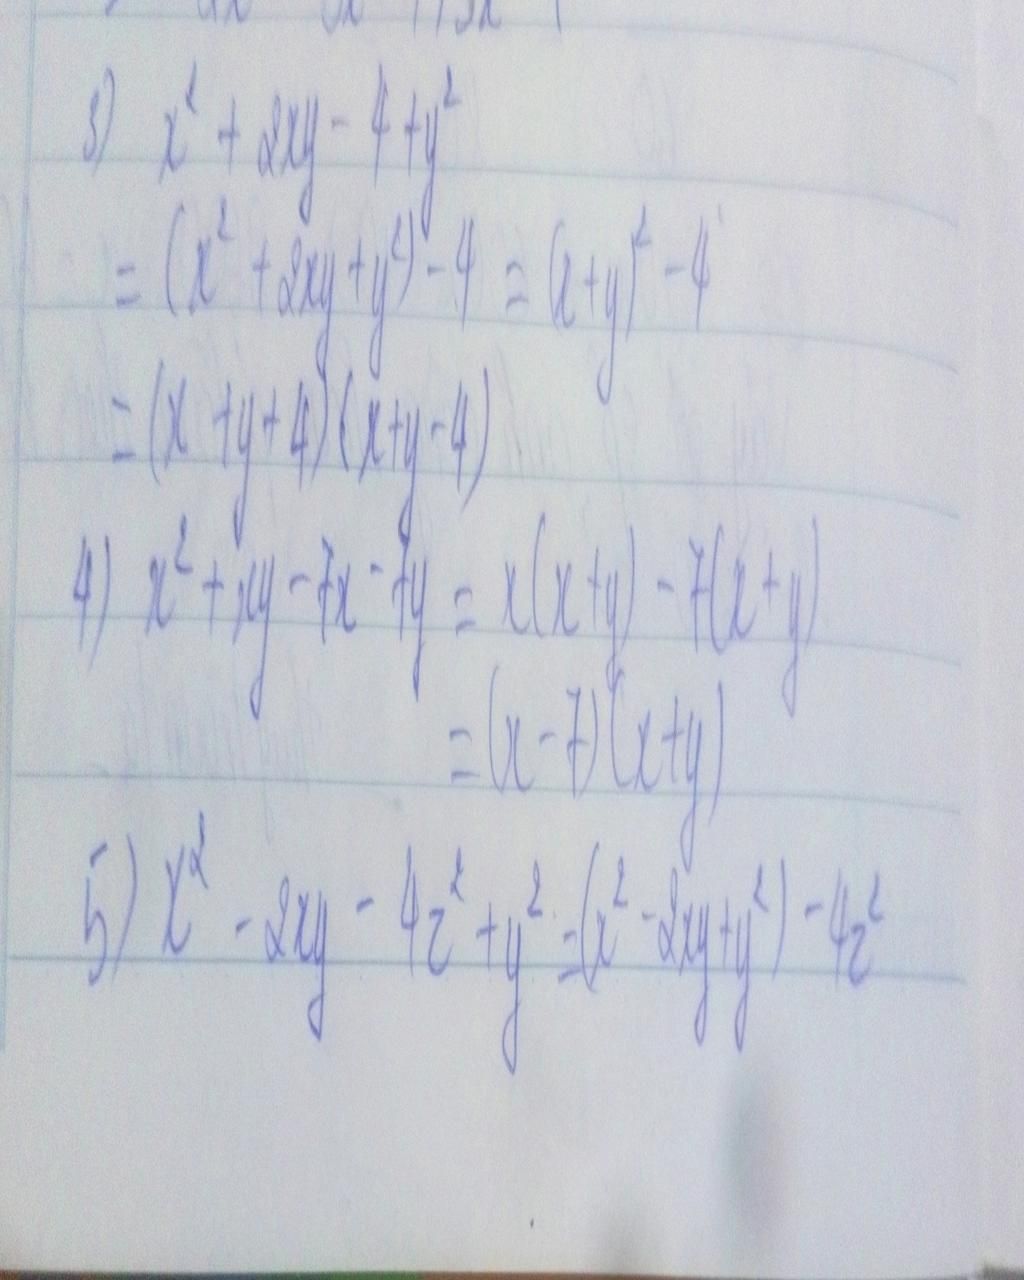 3) x² + 2xy - 4 + y²
= (x² + 2xy + y²) - 4 = (x+y)² - 4
= (x + y + 4) (x + y - 4)
4) x² + xy - 7x - 7y = x(x + y) - 7(x + y)
= (x - 7) (x + y)
5) x² - 2xy - 4z² + y² = (x² - 2xy + y²) - 4z²